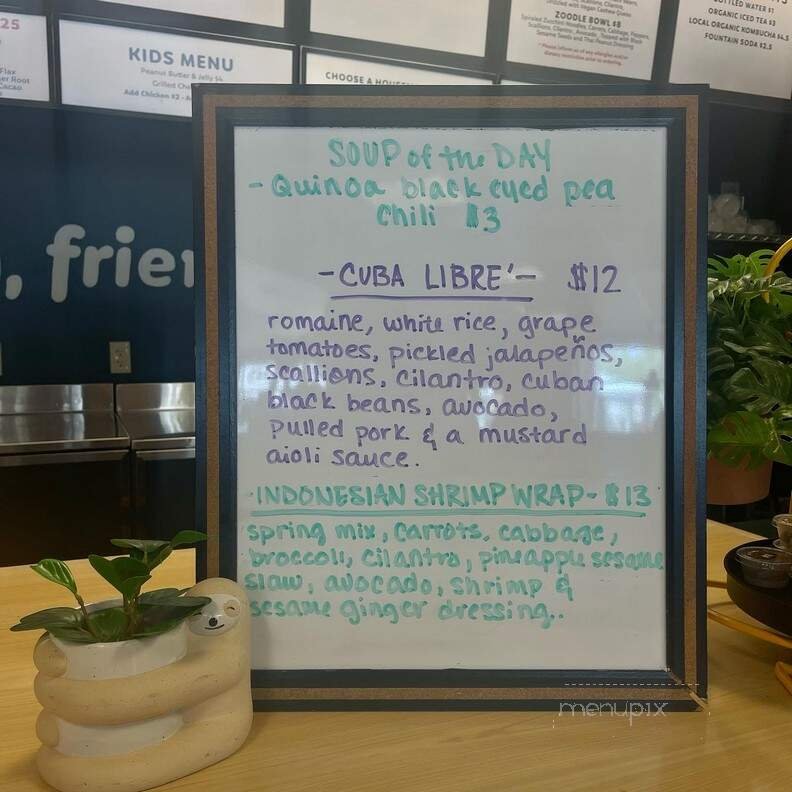 25
Flax
Cacao
KIDS MENU
Peanut Butter & Jelly $4
Grilled
Add Chicken $2 -
CHOOSE A
ZOODLE BOWL $8
ORGANIC ICED TEA $3
LOCAL ORGANIC KOMBUCHA $4.5
FOUNTAIN SODA $2.5
SOUP of the DAY
- Quinoa black eyed pea
Chili $3
- CUBA LIBRE' - $12
romaine, white rice, grape
tomatoes, pickled jalapeños,
scallions, cilantro, cuban
black beans, avocado,
pulled pork & a mustard
aioli sauce.
-INDONESIAN SHRIMP WRAP- $13
spring mix, carrots, cabbage,
broccoli, cilantro, pineapple sesame
slaw, avocado, shrimp &
sesame ginger dressing..
menupix